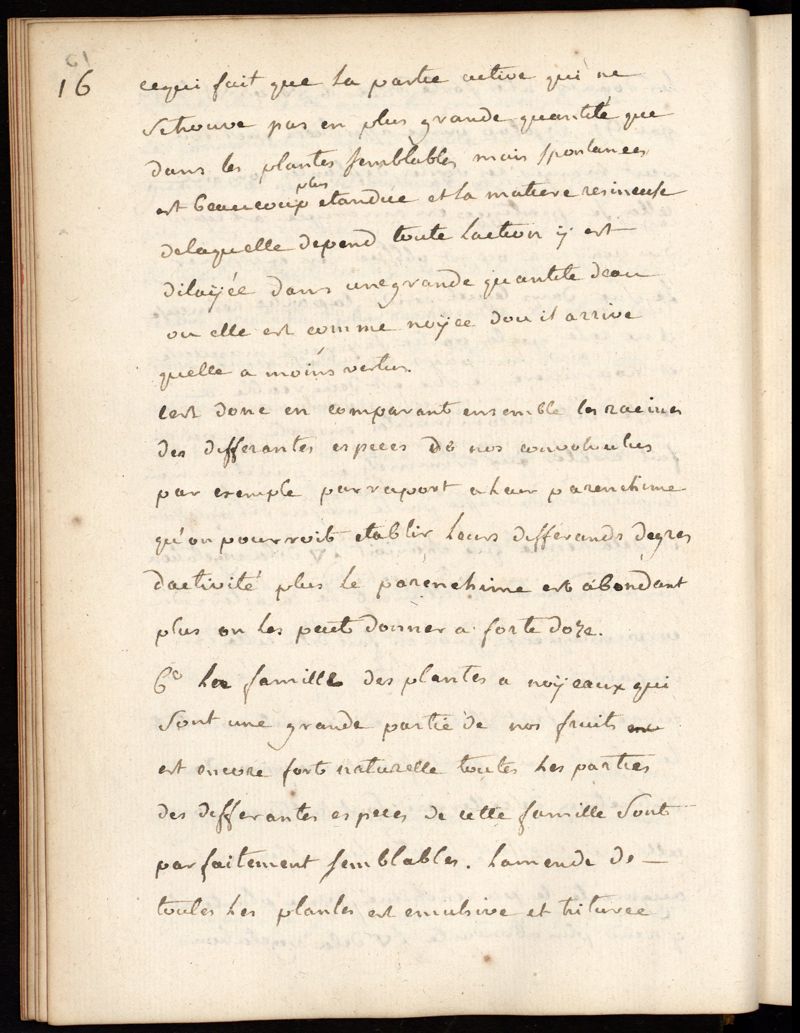 16
cequi fait que la partie active qui ne
se trouve pas en plus grande quantité que
dans les plantes semblables mais spontanées
est beaucoup plus etandüe et la matiere resineuse
delaquelle depend toute laction ÿ est
dilaÿée dans unegrande quantité deau
ou elle est comme noÿee dou il arrive
quelle a moins vertus.
cest donc en comparant ensemble les racines
des differantes especes de nos convolvulus
par exemple par raport a leur parenchime
qu'on pourroit etablir leurs differands degres
dactivité plus le parenchime est abondant
plus on les peut donner a forte doze.
6e La famille des plantes a noÿeaux qui
sont une grande partie de nos fruits
est encore fort naturelle toutes les parties
des differantes especes de cette famille sont
parfaitement semblables. lamende de
toutes les plantes est emulsive et triturée